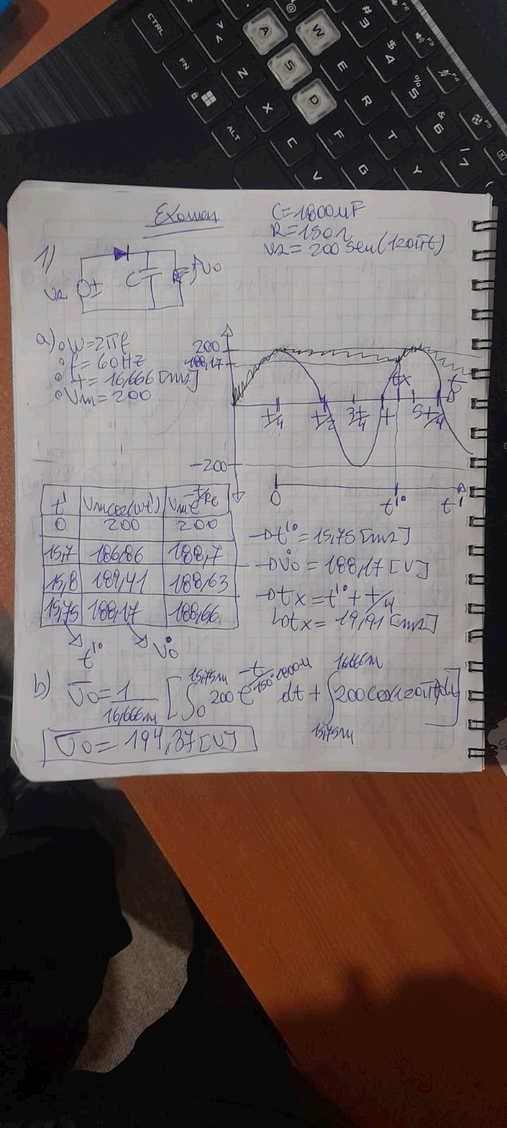 CTRL
FN
ALT
A
W
S
D
Z
X
C
V
E
R
F
G
T
Y
# 3
$ 4
% 5
& 6
/ 7
Examen
C=1800μF
R=150Ω
1)
C
V0
a) ω=2πf
f=60Hz
t=16,666[ms]
Vm=200
200
188,17
-200
t/4
t/2
3t/4
t
5t/4
tx
t
0
t'°
t'
t' Vmcos(wt') Vme^-t/RC
0 200 200
15,7 186,86 188,7
15,8 189,41 188,63
15,75 188,17 188,66
t'°
V0°
→t'°=15,75[ms]
→V0°=188,17[V]
→tx=t'°+t/4
tx=19,91[ms]
b) V̅0=1/16,666m [∫0^15,75m 200 e^-t/150·1800μ dt + ∫15,75m^16,66m 200cos(120πt)dt]
V̅0=194,37[V]